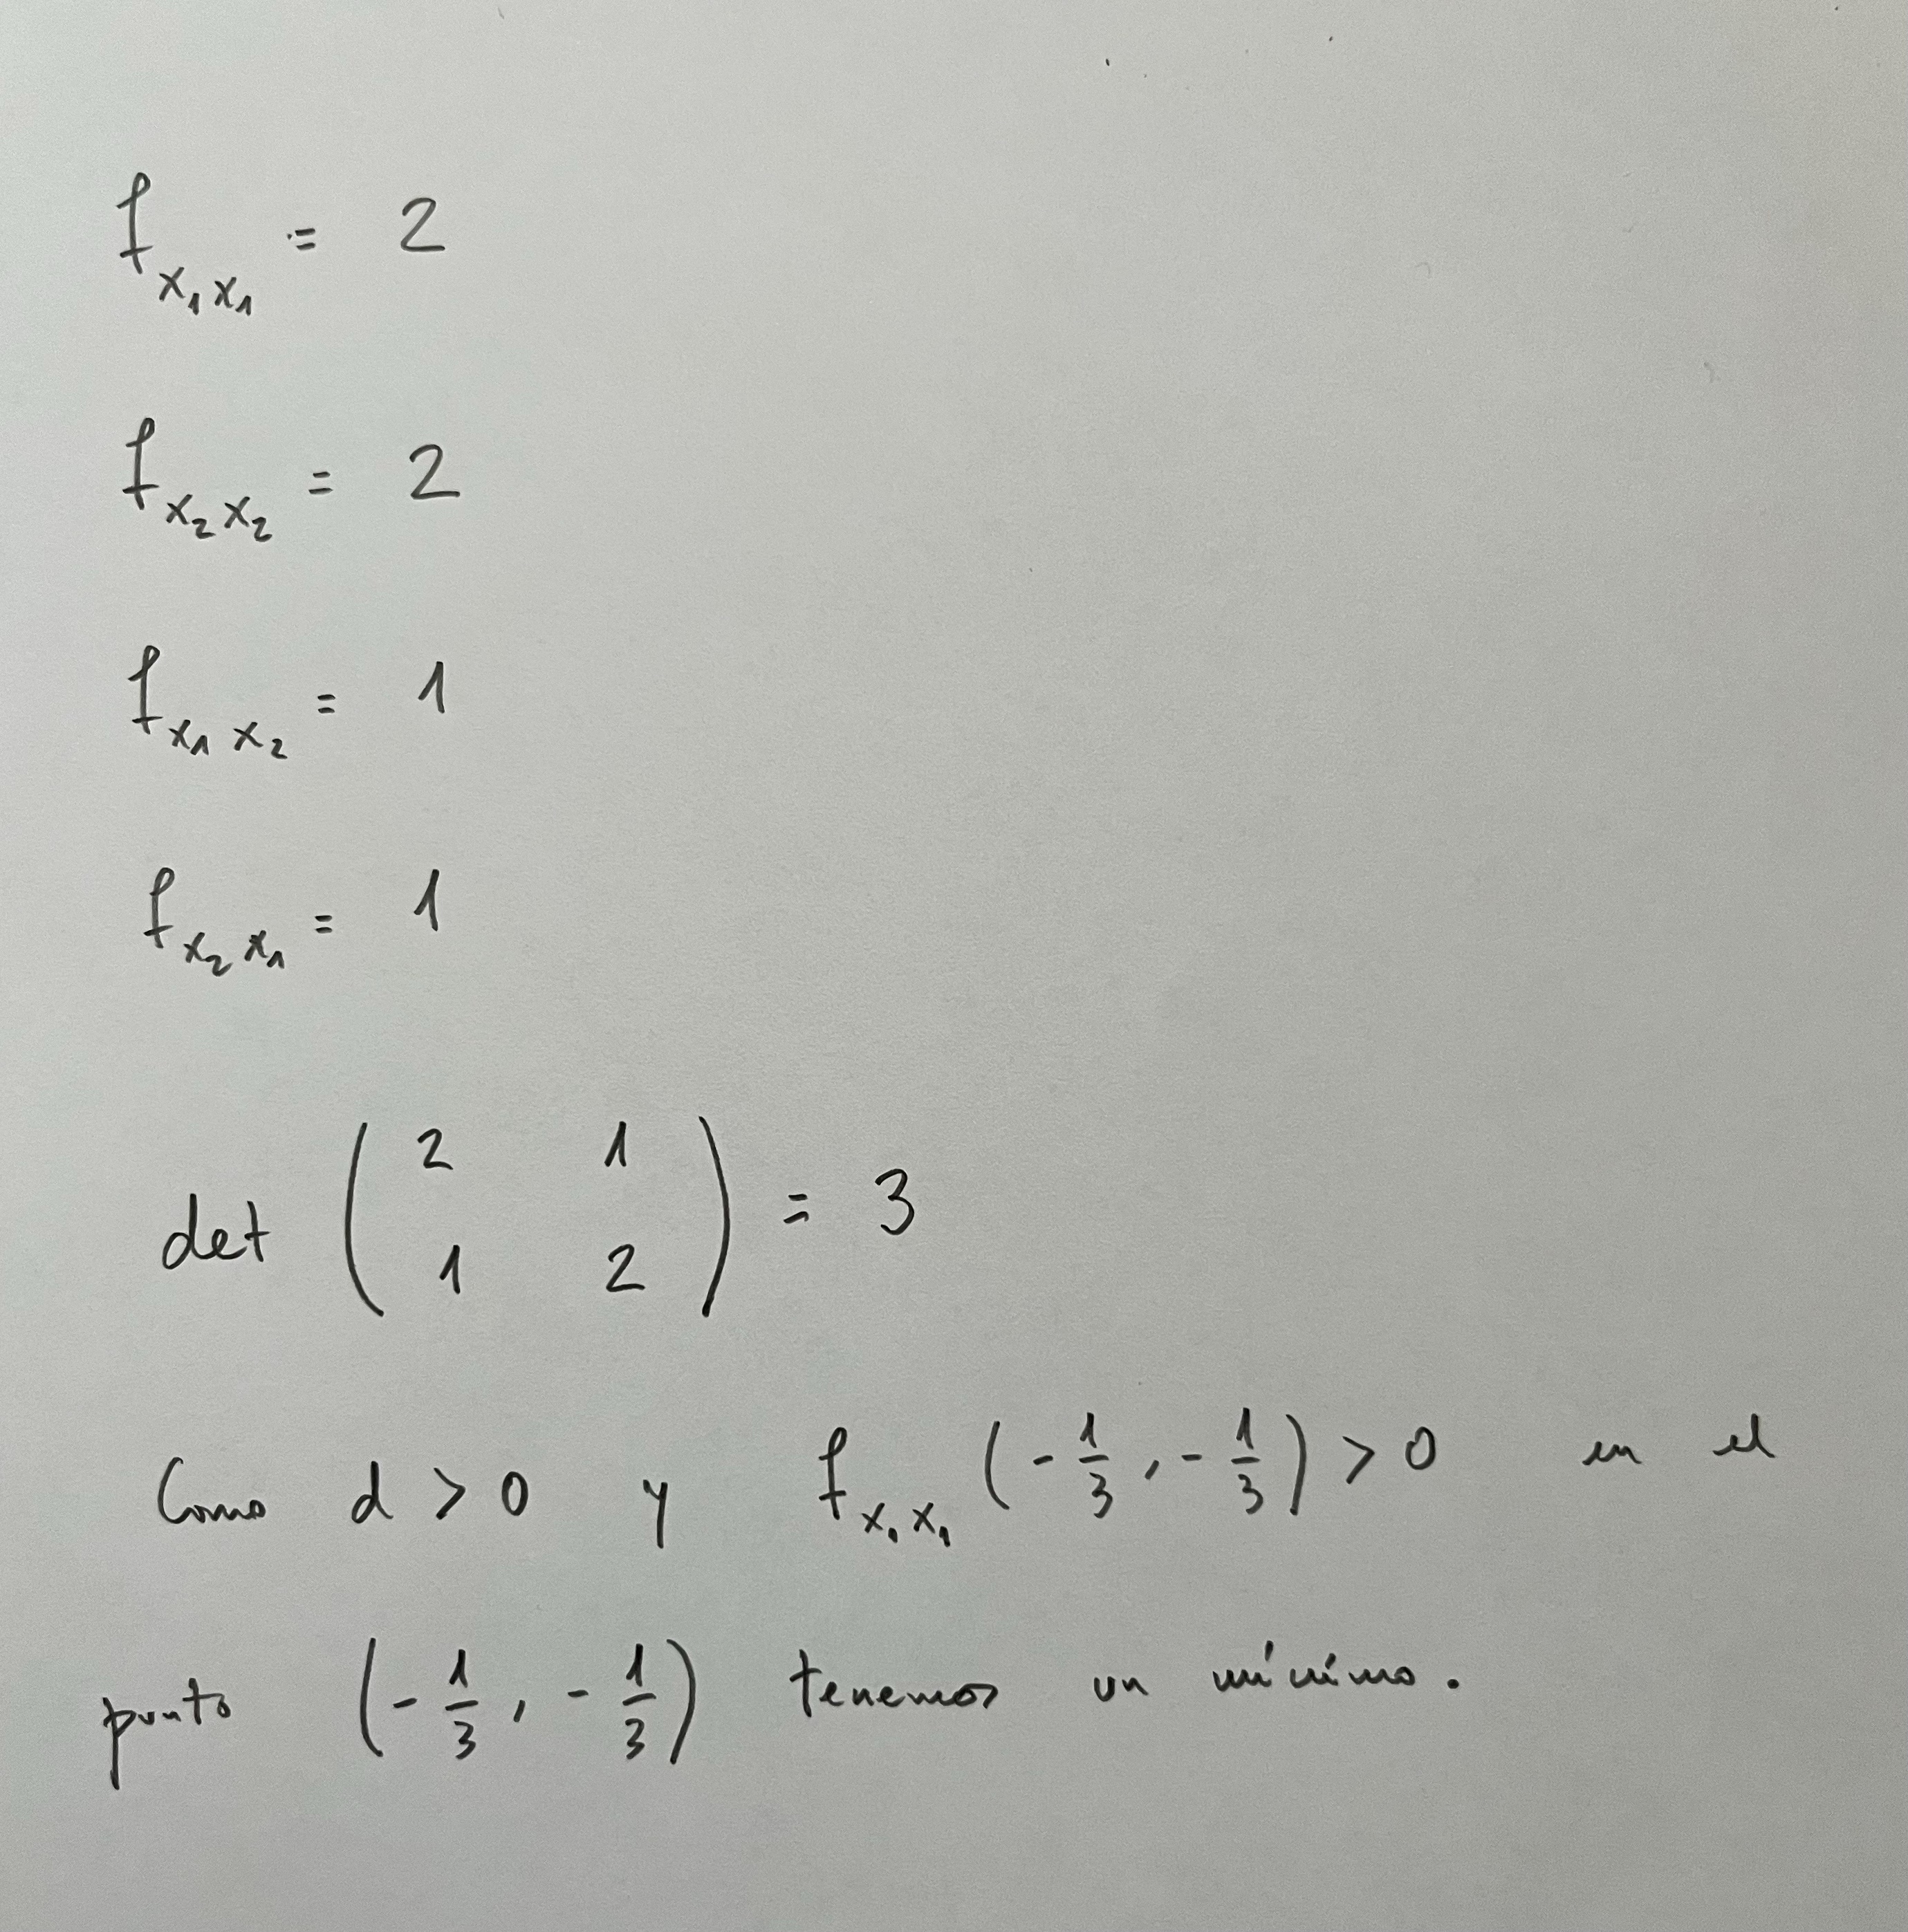 f_{x_1 x_1} = 2
f_{x_2 x_2} = 2
f_{x_1 x_2} = 1
f_{x_2 x_1} = 1
det \begin{pmatrix} 2 & 1 \\ 1 & 2 \end{pmatrix} = 3
Como d > 0 y f_{x_1 x_1} (-\frac{1}{3}, -\frac{1}{3}) > 0 en el
punto (-\frac{1}{3}, -\frac{1}{3}) tenemos un mínimo.